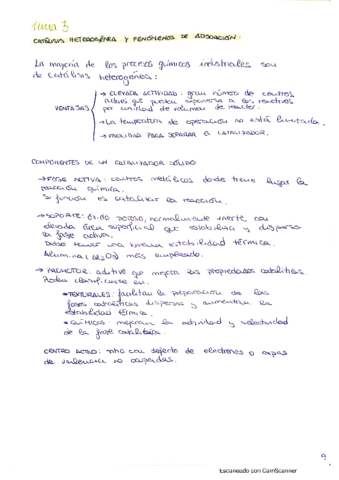 Tema 3
CATÁLISIS HETEROGÉNEA Y FENÓMENOS DE ADSORCIÓN.
La mayoría de los procesos químicos industriales son
de catálisis heterogénea:
→ ELEVADA ACTIVIDAD: gran número de centros
activos que pueden exponerse a los reactivos
por unidad de volumen de reactor.
VENTAJAS
→ La temperatura de operación no está limitada.
→ FACILIDAD PARA SEPARAR EL CATALIZADOR.
COMPONENTES DE UN CATALIZADOR SÓLIDO.
→ FASE ACTIVA: centros metálicos donde tiene lugar la
reacción química.
Su función es catalizar la reacción.
→ SOPORTE: sólido poroso, normalmente inerte, con
elevada área superficial que estabiliza y dispersa
la fase activa.
Debe tener una buena estabilidad térmica.
Alúmina (Al2O3) más empleado.
→ PROMOTOR: aditivo que mejora las propiedades catalíticas
Pueden clasificarse en:
• TEXTURALES: facilitan la preparación de las
fases catalíticas dispersas y aumentan la
estabilidad térmica.
• QUÍMICOS: mejoran la actividad y selectividad
de la fase catalítica.
CENTRO ACTIVO: sitio con defecto de electrones o capas
de valencia no ocupadas.
Escaneado con CamScanner